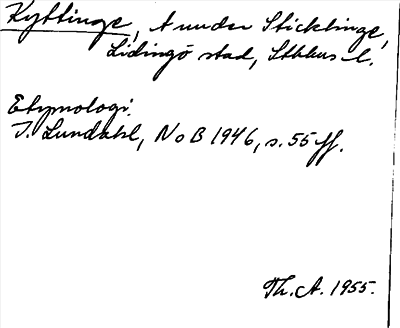 Kyttinge, t under Sticklinge,
Lidingö stad, Sthlms l.
Etymologi.
I. Lundahl, NoB 1946, s. 55 ff.
Th. A. 1955.